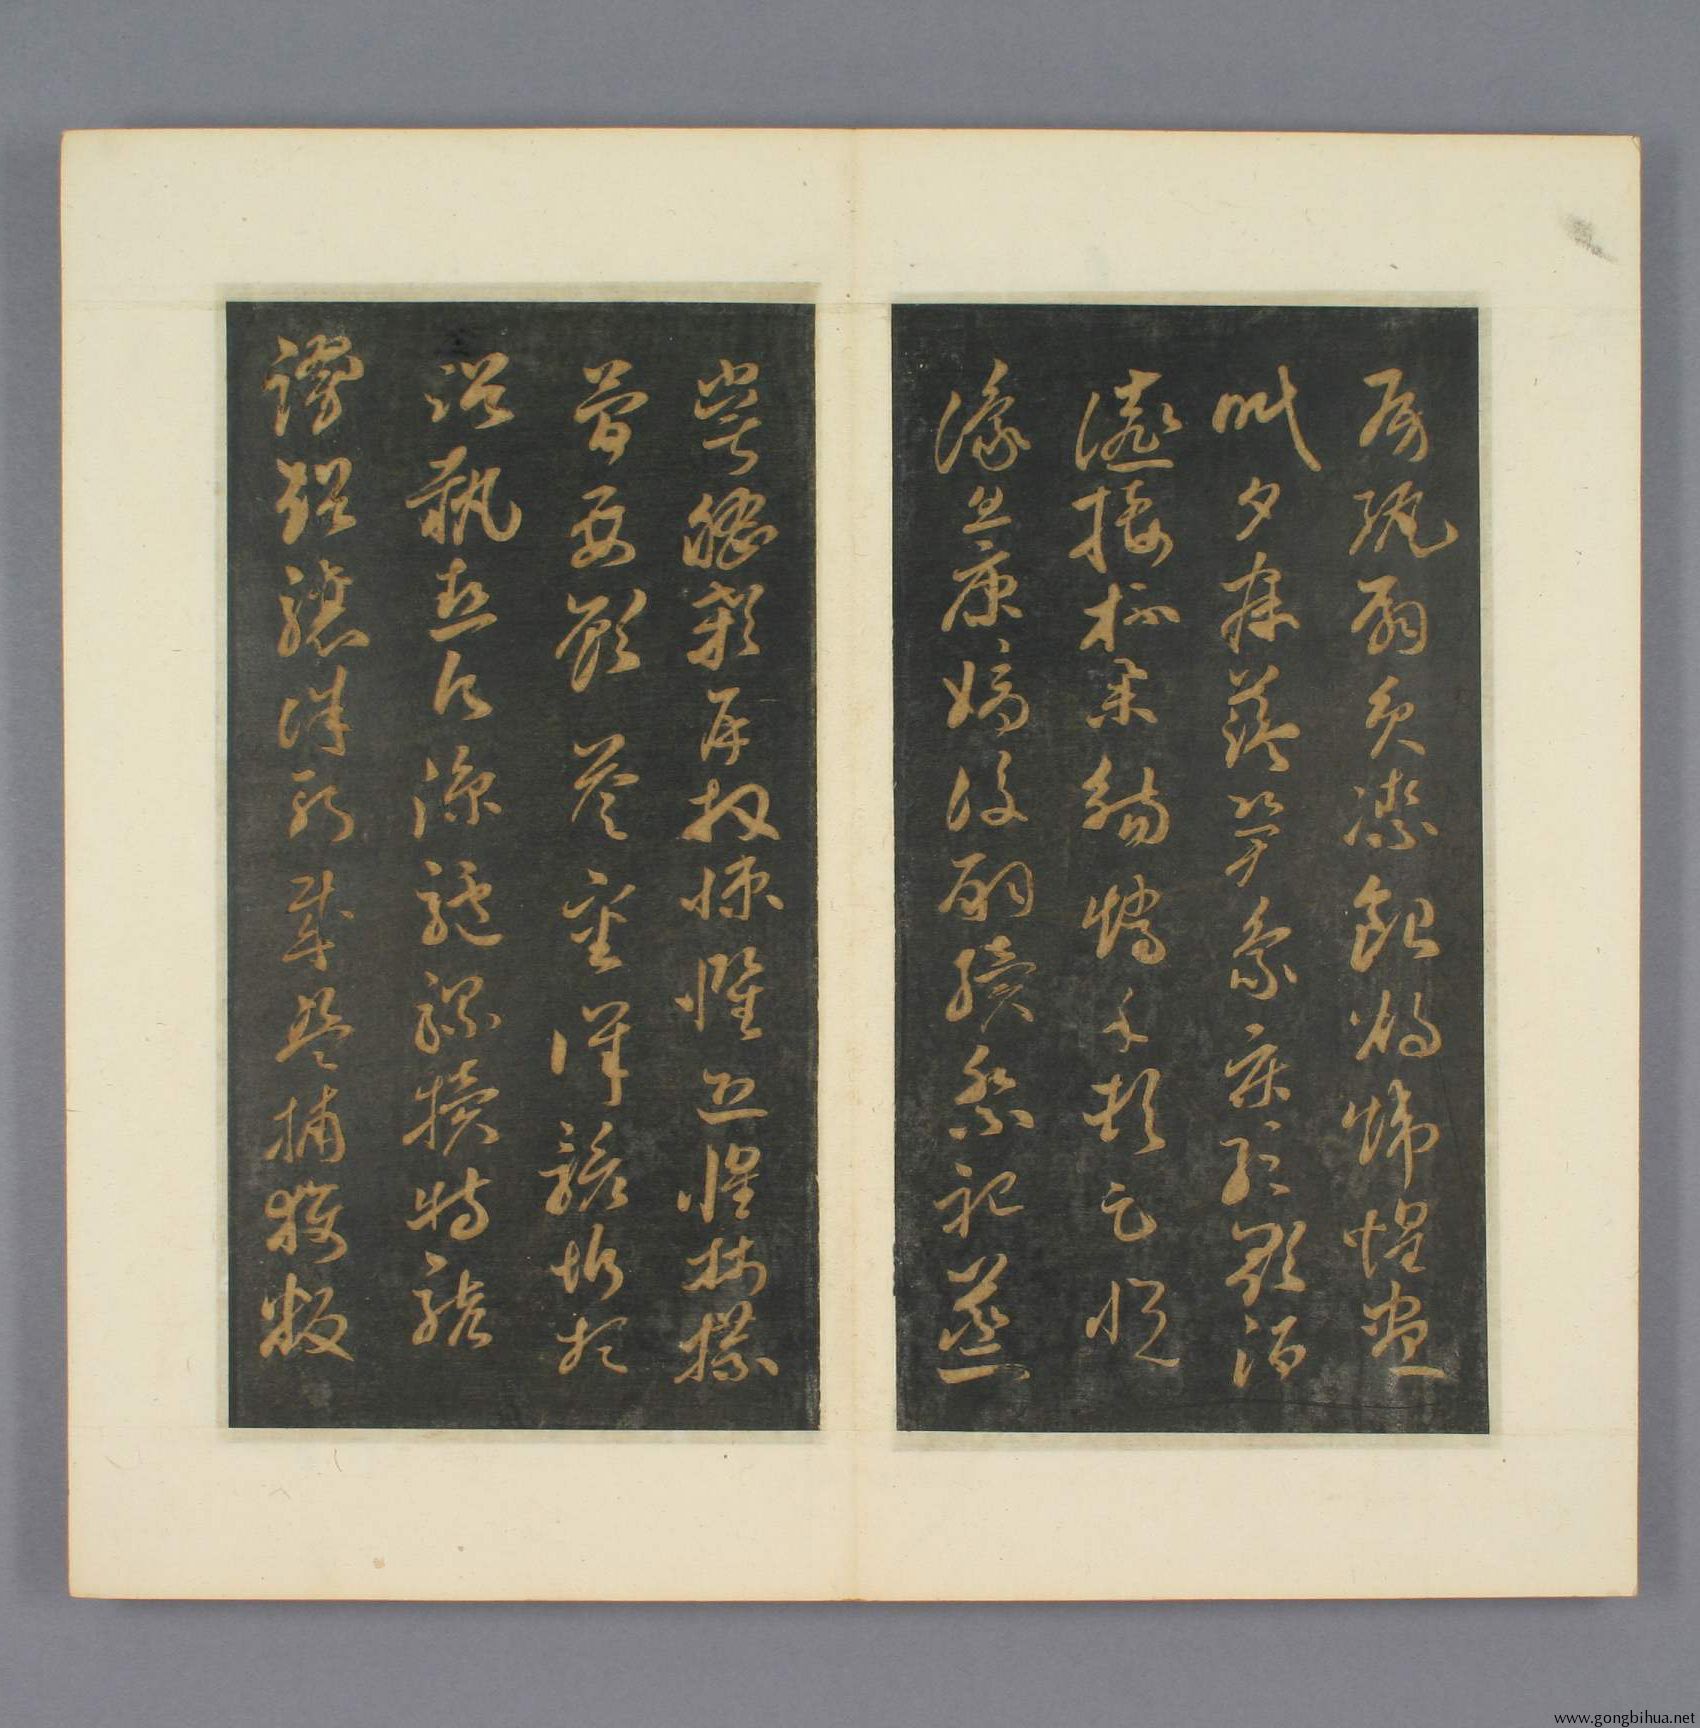 房紈扇員潔銀燭煒煌晝
眠夕寐藍筍象床弦歌酒
讌接杯舉觴矯手頓足悅
豫且康嫡後嗣續祭祀蒸
嘗稽顙再拜悚懼恐惶牋牒
簡要顧答審詳骸垢想
浴執熱願涼驢騾犢特駭
躍超驤誅斬賊盜捕獲叛
www.gongbihua.net